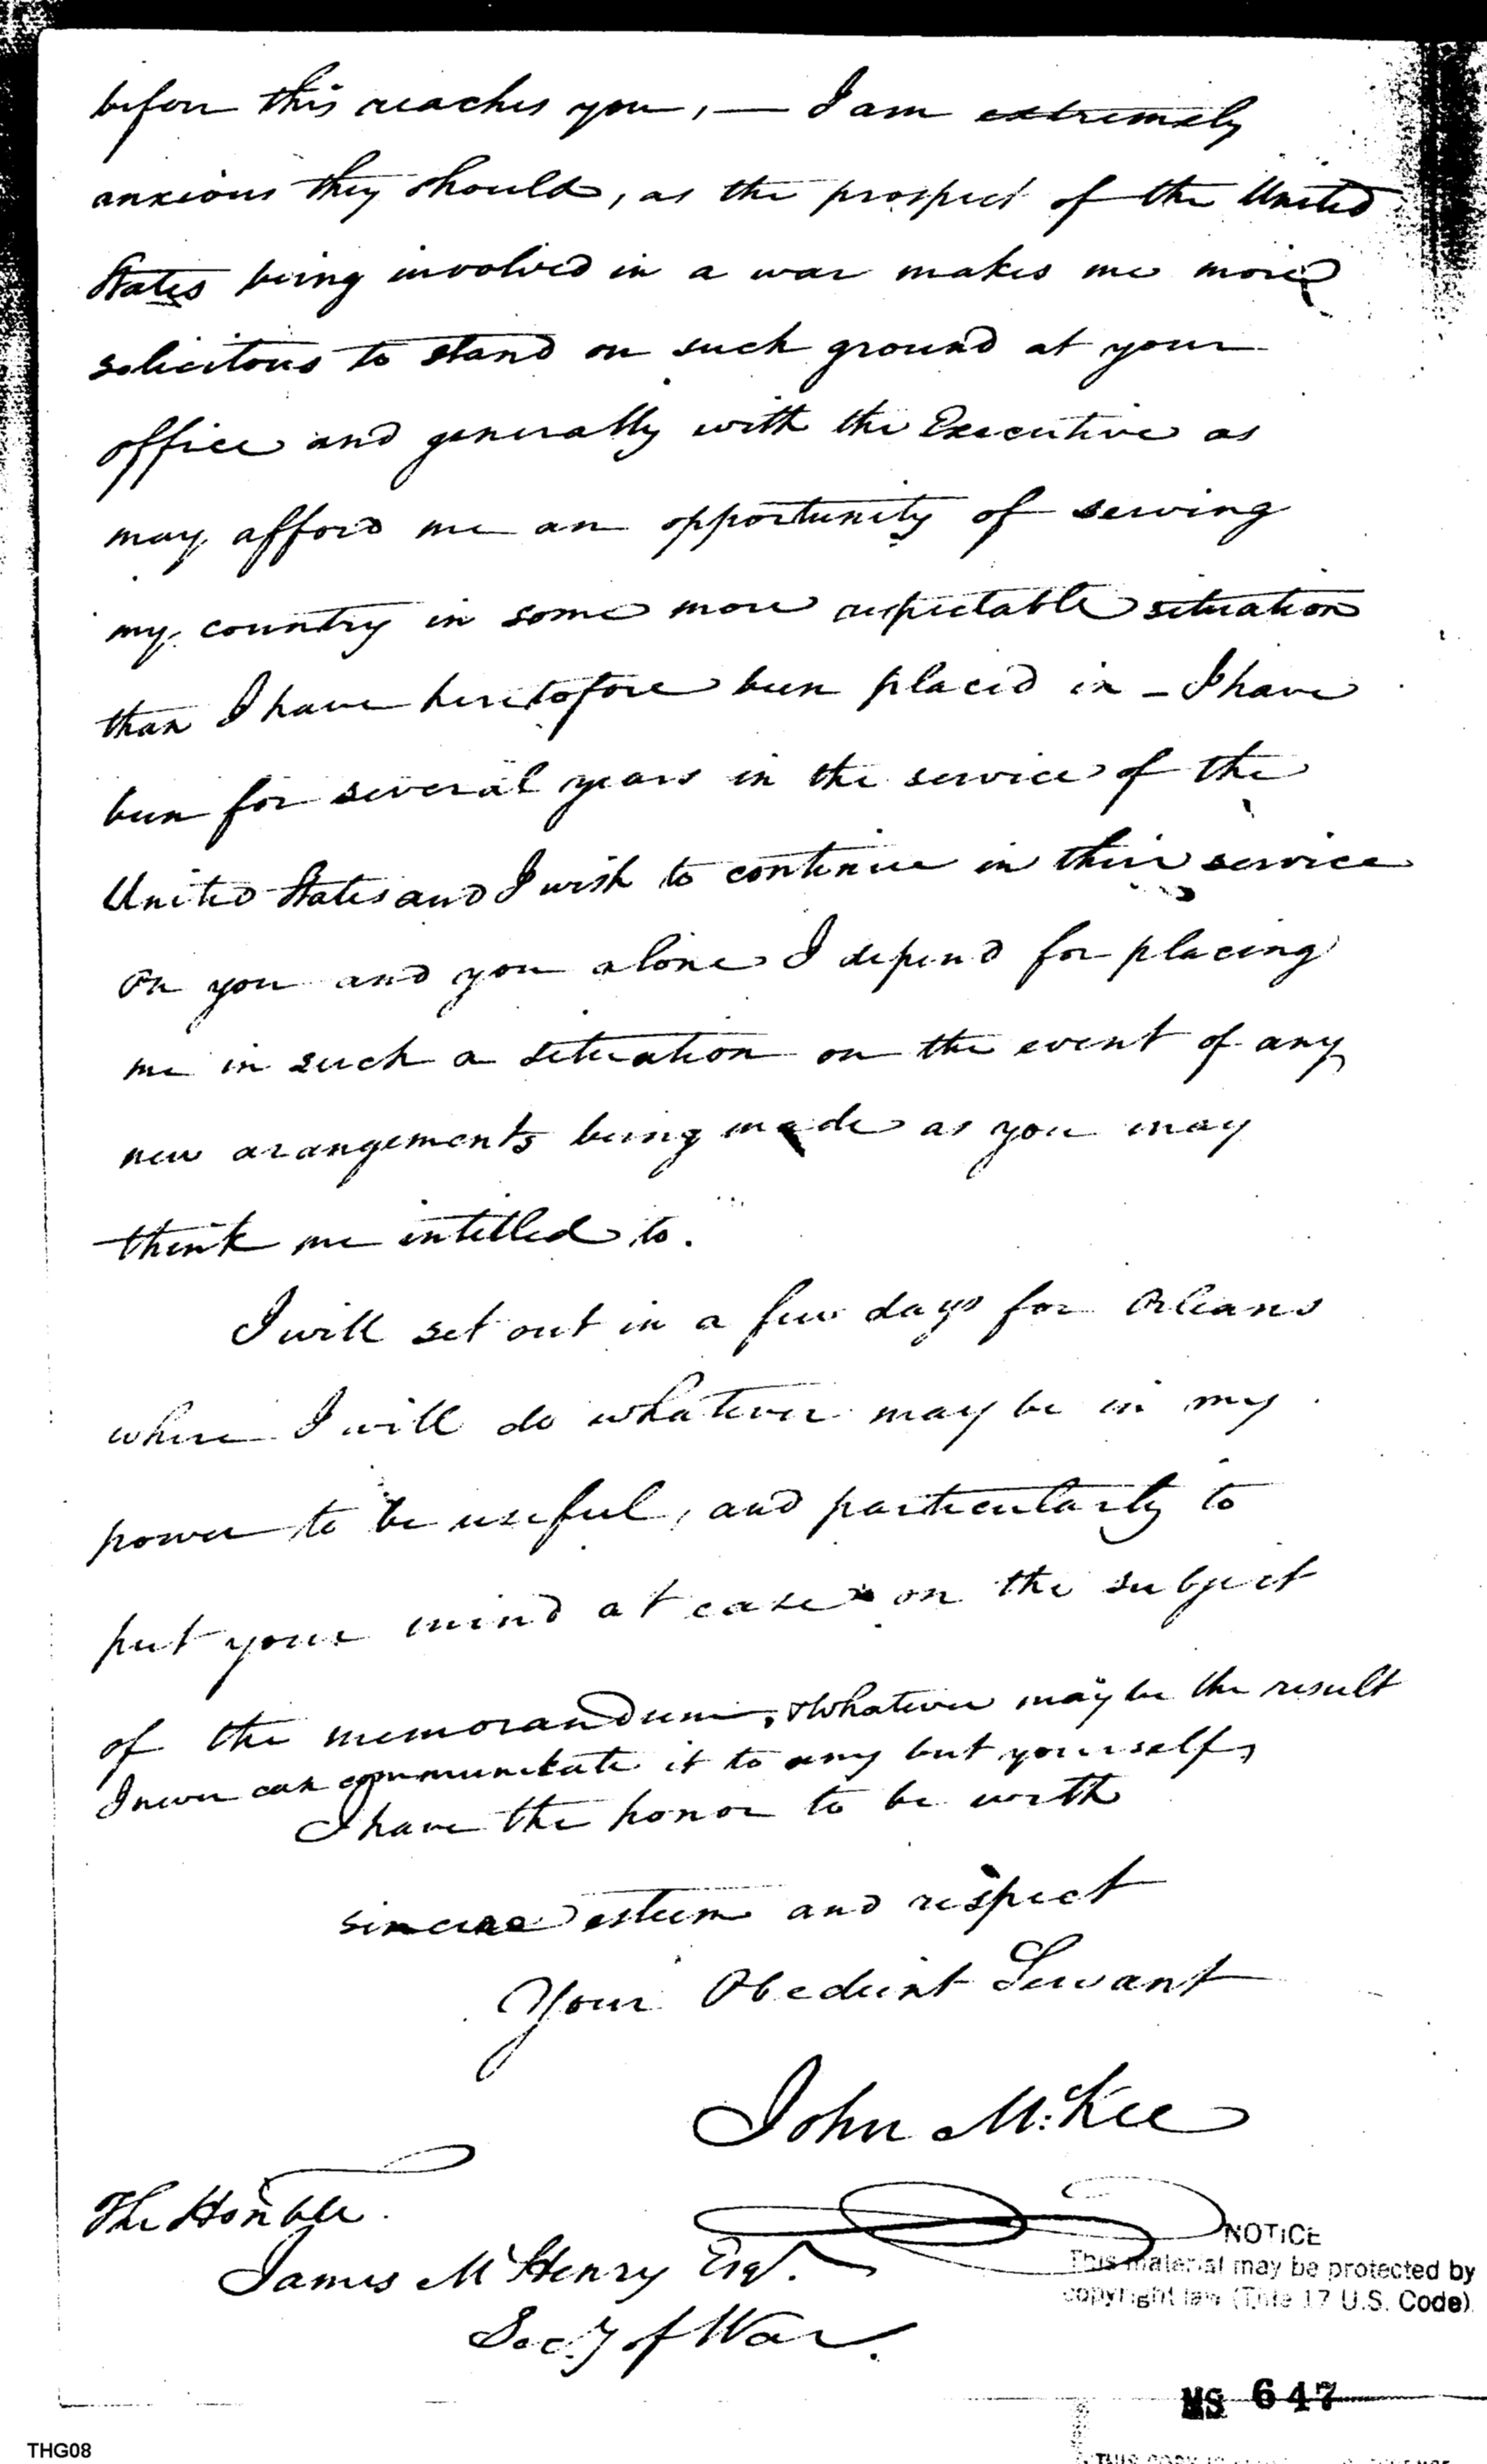 before this reaches you, — I am extremely
anxious they should, as the prospect of the United
States being involved in a war makes me more
solicitous to stand on such ground at your
office and generally with the Executive as
may afford me an opportunity of serving
my country in some more respectable situation
than I have heretofore been placed in – I have
been for several years in the service of the
United States and I wish to continue in their service
on you and you alone I depend for placing
me in such a situation on the event of any
new arangements being made as you may
think me intitled to.
I will set out in a few days for Orleans
where I will do whatever may be in my
power to be useful, and particularly to
put your mind at ease on the subject
of the memorandum, & whatever may be the result
I never can communicate it to any but yourself,
I have the honor to be with
sincere esteem and respect
Your Obedient Servant
John McKee
The Honble
James McHenry Esqr.
Secy of War.
NOTICE
This material may be protected by
copyright law (Title 17 U.S. Code)
MS 647
THG08